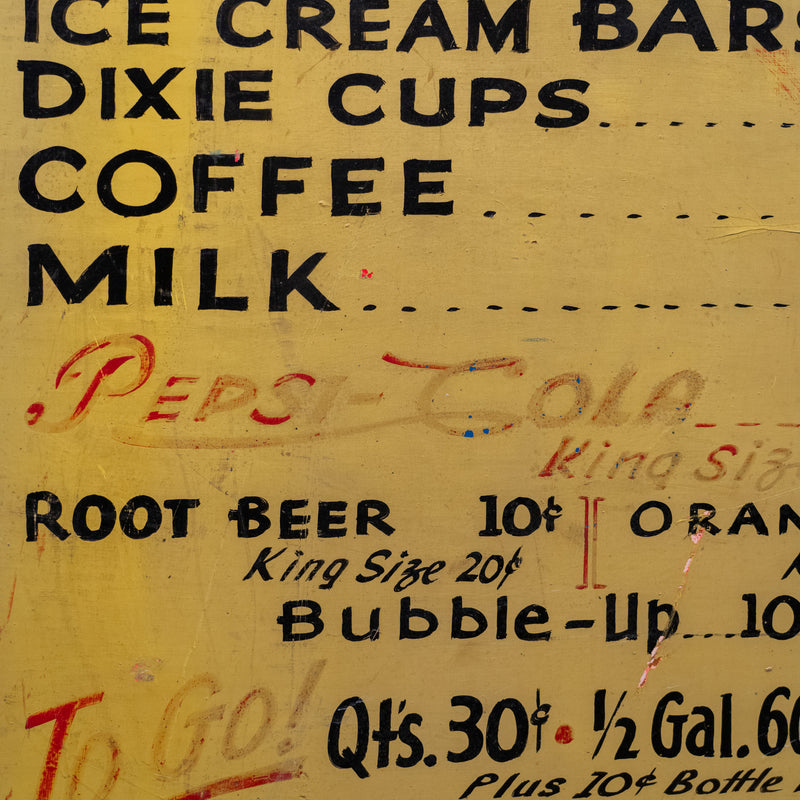 ICE CREAM BARS
DIXIE CUPS..........
COFFEE ........
MILK ............
PEPSI-COLA
King Size
ROOT BEER 10¢ ORAN
King Size 20¢
Bubble-Up....10
To Go! Qts. 30¢ • 1/2 Gal. 60
Plus 10¢ Bottle